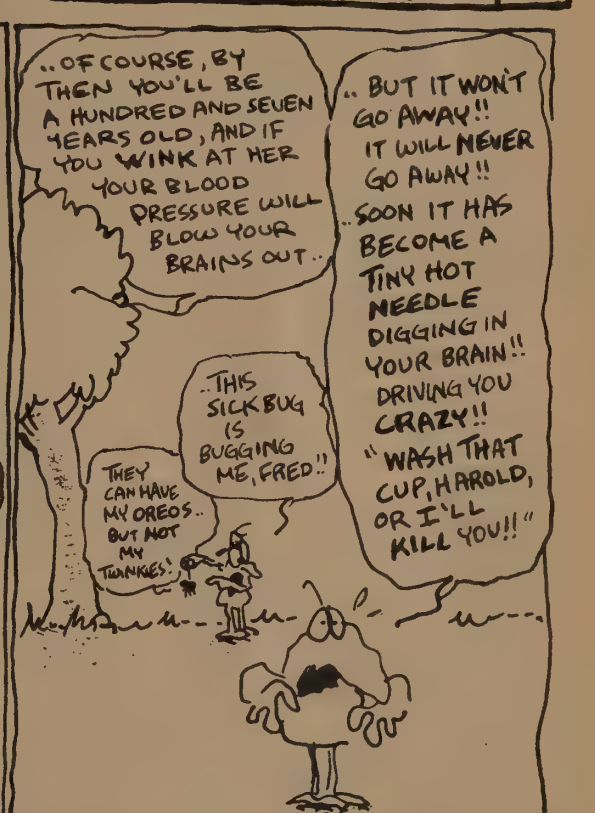 ..OF COURSE, BY
THEN YOU'LL BE
A HUNDRED AND SEVEN
YEARS OLD, AND IF
YOU WINK AT HER
YOUR BLOOD
PRESSURE WILL
BLOW YOUR
BRAINS OUT..
.. BUT IT WON'T
GO AWAY!!
IT WILL NEVER
GO AWAY!!
..SOON IT HAS
BECOME A
TINY HOT
NEEDLE
DIGGING IN
YOUR BRAIN!!
DRIVING YOU
CRAZY!!
"WASH THAT
CUP, HAROLD,
OR I'LL
KILL YOU!!"
..THIS
SICK BUG
IS
BUGGING
ME, FRED!!
THEY
CAN HAVE
MY OREOS..
BUT NOT
MY
TWINKIES!